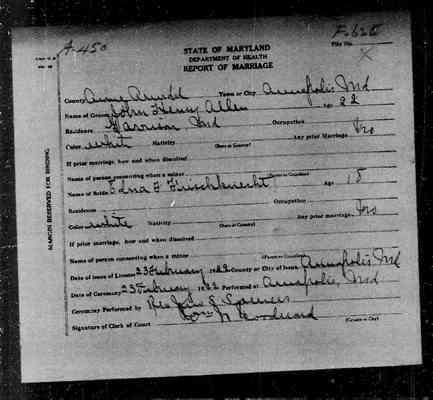 A-450
F-625
STATE OF MARYLAND
DEPARTMENT OF HEALTH
REPORT OF MARRIAGE
File No.
County Anne Arundel Town or City Annapolis, Md
Name of Groom John Henry Allen Age 22
Residence Harrison Md Occupation
Color white Nativity (State or Country) Any prior Marriage No
If prior marriage, how and when dissolved
Name of person consenting when a minor (Parent or Guardian)
Name of Bride Edna F Age 18
Residence Occupation
Color white Nativity (State or Country) Any prior marriage No
If prior marriage, how and when dissolved
Name of person consenting when a minor (Parent or Guardian)
Date of Issue of License 23 February 1922 County or City of Issue Annapolis Md
Date of Ceremony 23 February 1922 Performed at Annapolis, Md
Ceremony Performed by Rev Jno S Spencer
Signature of Clerk of Court Woodward (County or City)
MARGIN RESERVED FOR BINDING